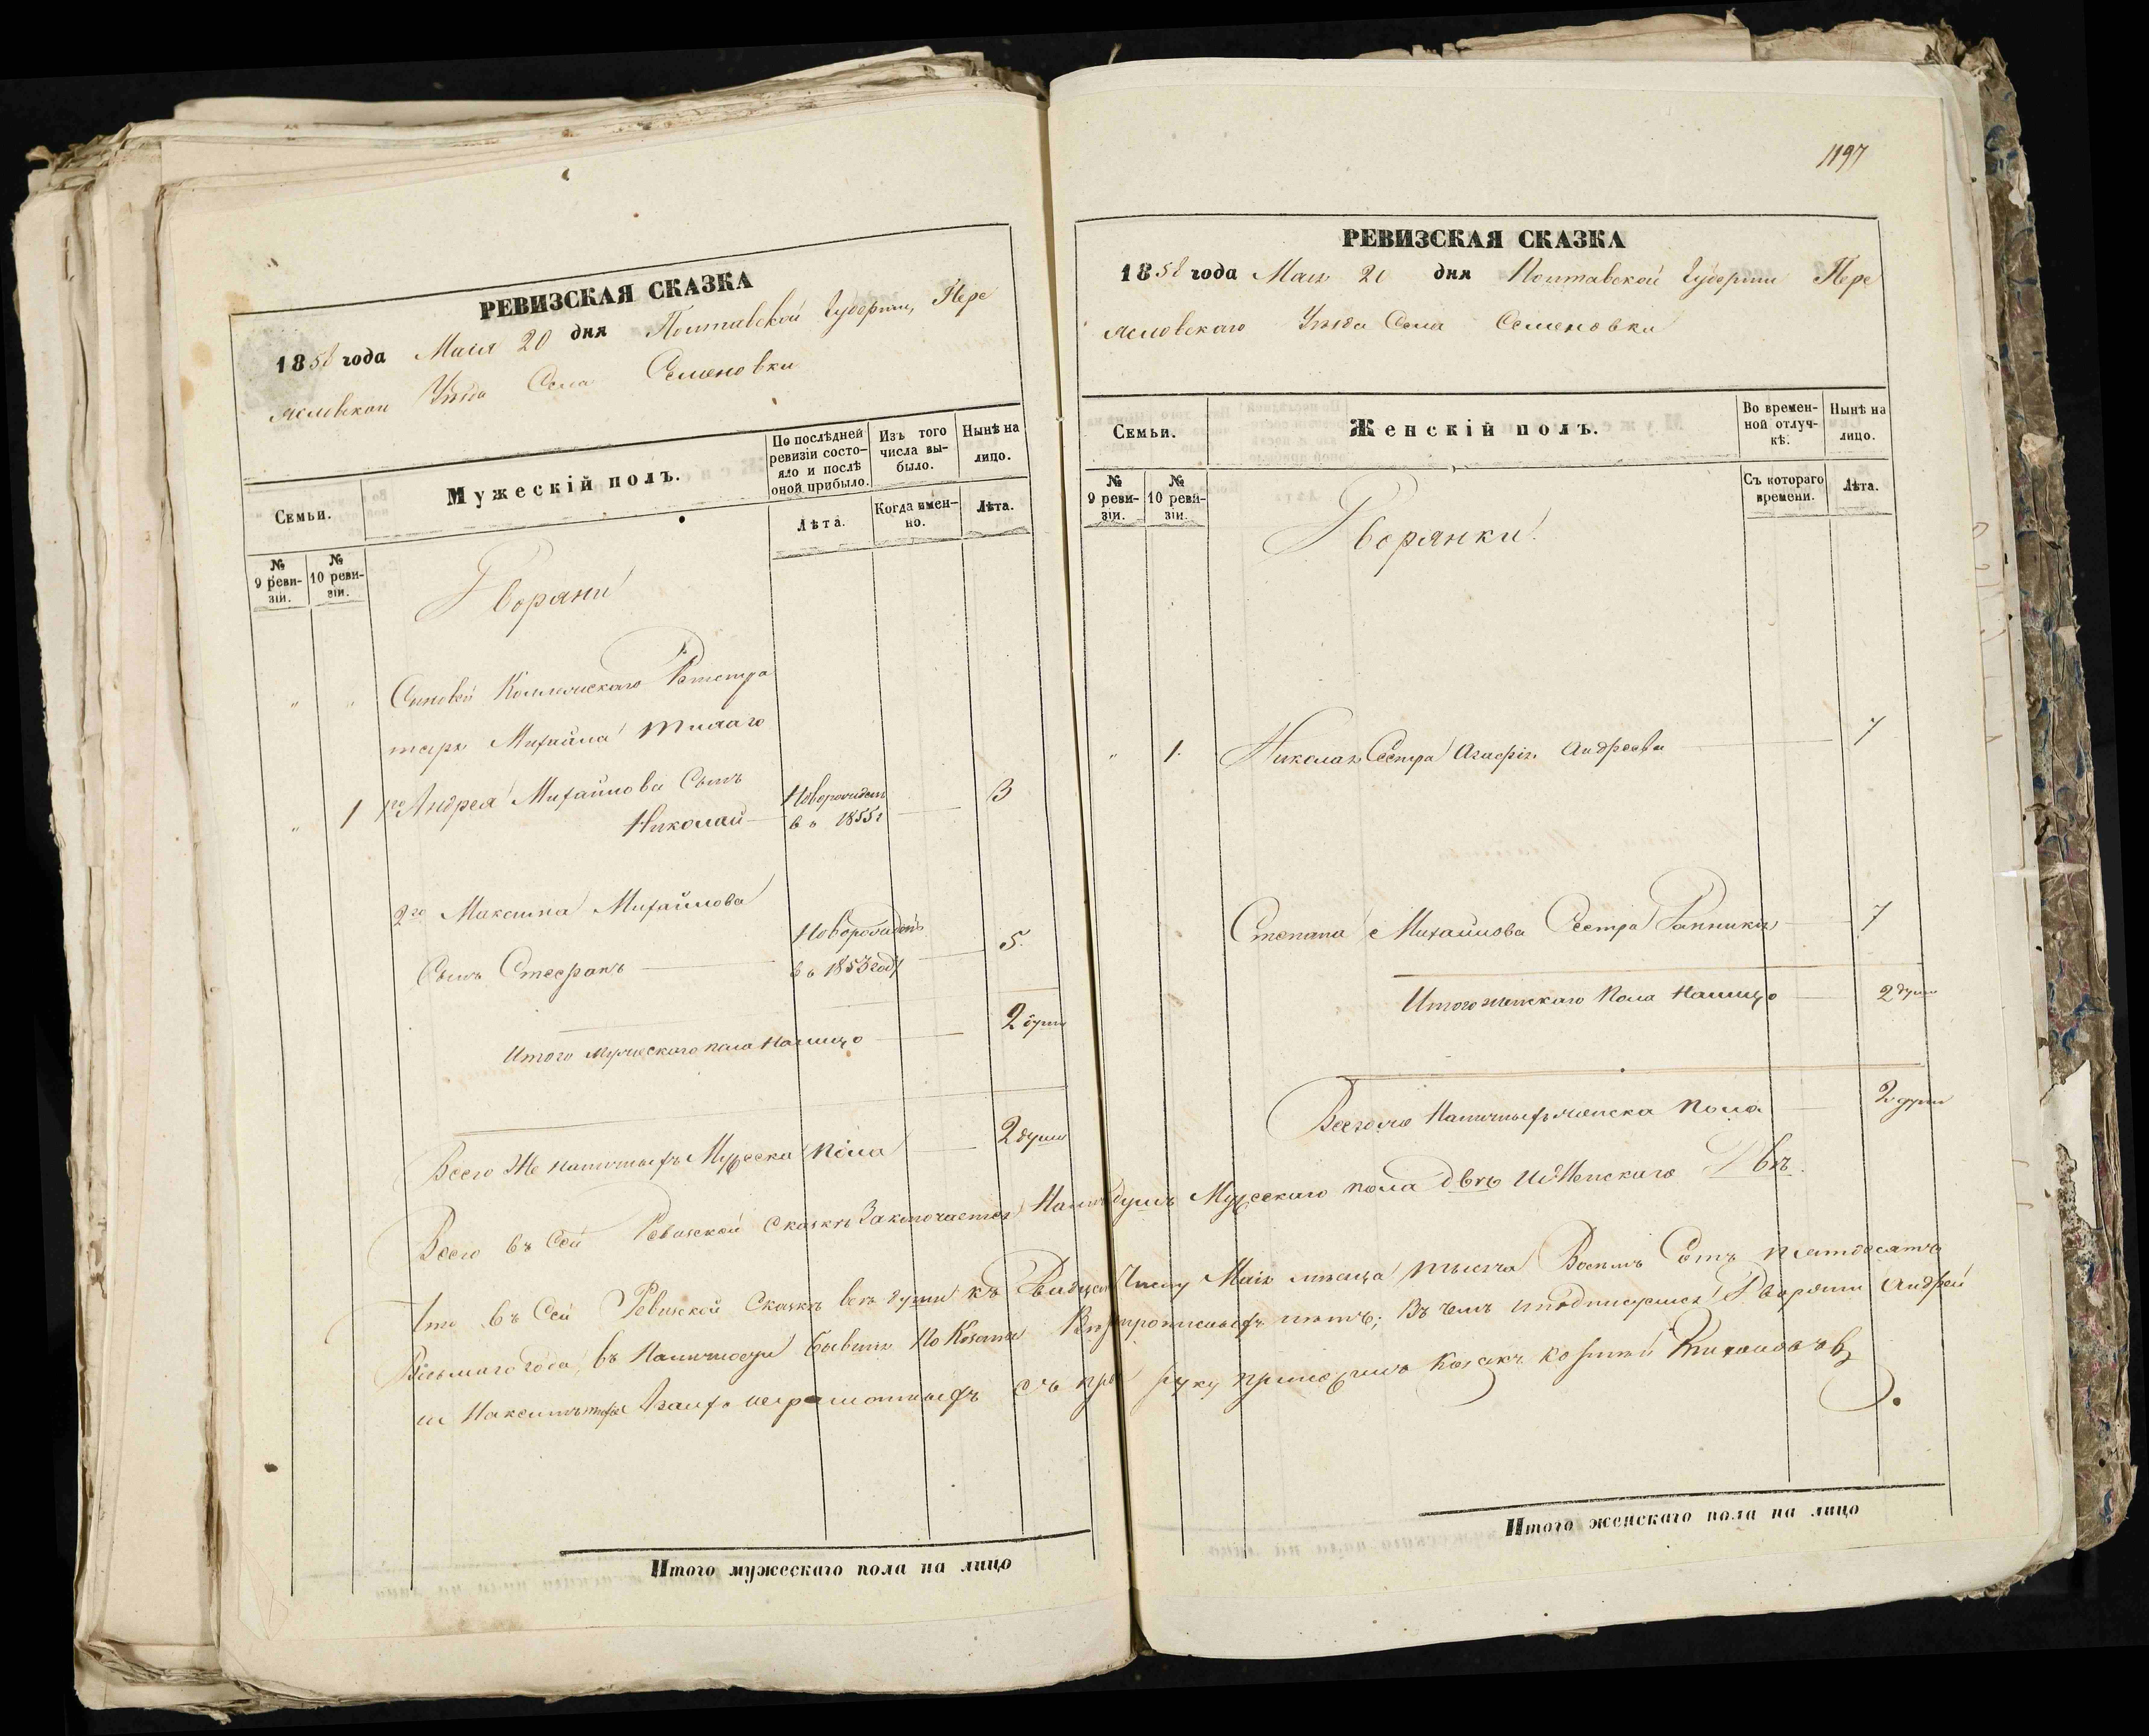 РЕВИЗСКАЯ СКАЗКА
1858 года Маія 20 дня Полтавской Губерніи, Пере
яславскаго Уѣзда Села Семеновки
Семьи.
Мужескій полъ.
По послѣдней ревизіи состояло и послѣ оной прибыло.
Изъ того числа выбыло.
Нынѣ на лицо.
№ 9 ревизіи.
№ 10 ревизіи.
Лѣта.
Когда именно.
Лѣта.
Дворяни
Синовей Коллежскаго Регистра
тора Михайла
1 1го Андрея Михайлова Сынъ
Николай Новорожденъ въ 1855г 3
2го Максима Михайлова
Сынъ Стефанъ Новорожденъ въ 1853 году 5.
Итого мужескаго пола налицо 2 души
Всего же наличныхъ Мужеска пола 2 души
Итого мужескаго пола на лицо
1197
РЕВИЗСКАЯ СКАЗКА
1858 года Маія 20 дня Полтавской Губерніи Пере
яславскаго Уѣзда Села Семеновки
Семьи.
Женскій полъ.
Во временной отлучкѣ.
Нынѣ на лицо.
№ 9 ревизіи.
№ 10 ревизіи.
Съ котораго времени.
Лѣта.
Дворянки
1. Николая Сестра Агафія Андреева 7
Степана Михайлова Сестра 7
Итого женскаго пола налицо 2 души
Всего же наличныхъ женска пола 2 души
Всего въ Сей Ревизской Сказкѣ Заключается Налицо душъ Мужескаго пола двѣ и Женскаго Двѣ.
Что въ Сей Ревизской Сказкѣ всѣ души къ Двадцатому Числу Маія мѣсяца тысяча Восемь Сотъ пятдесятъ
Восьмаго года, въ наличности бывшіе показаны и прописныхъ нѣтъ; въ чемъ и подписуемся Дворяни Андрей
и Максимъ неграмотныхъ руку приложилъ Казакъ
Итого женскаго пола на лицо